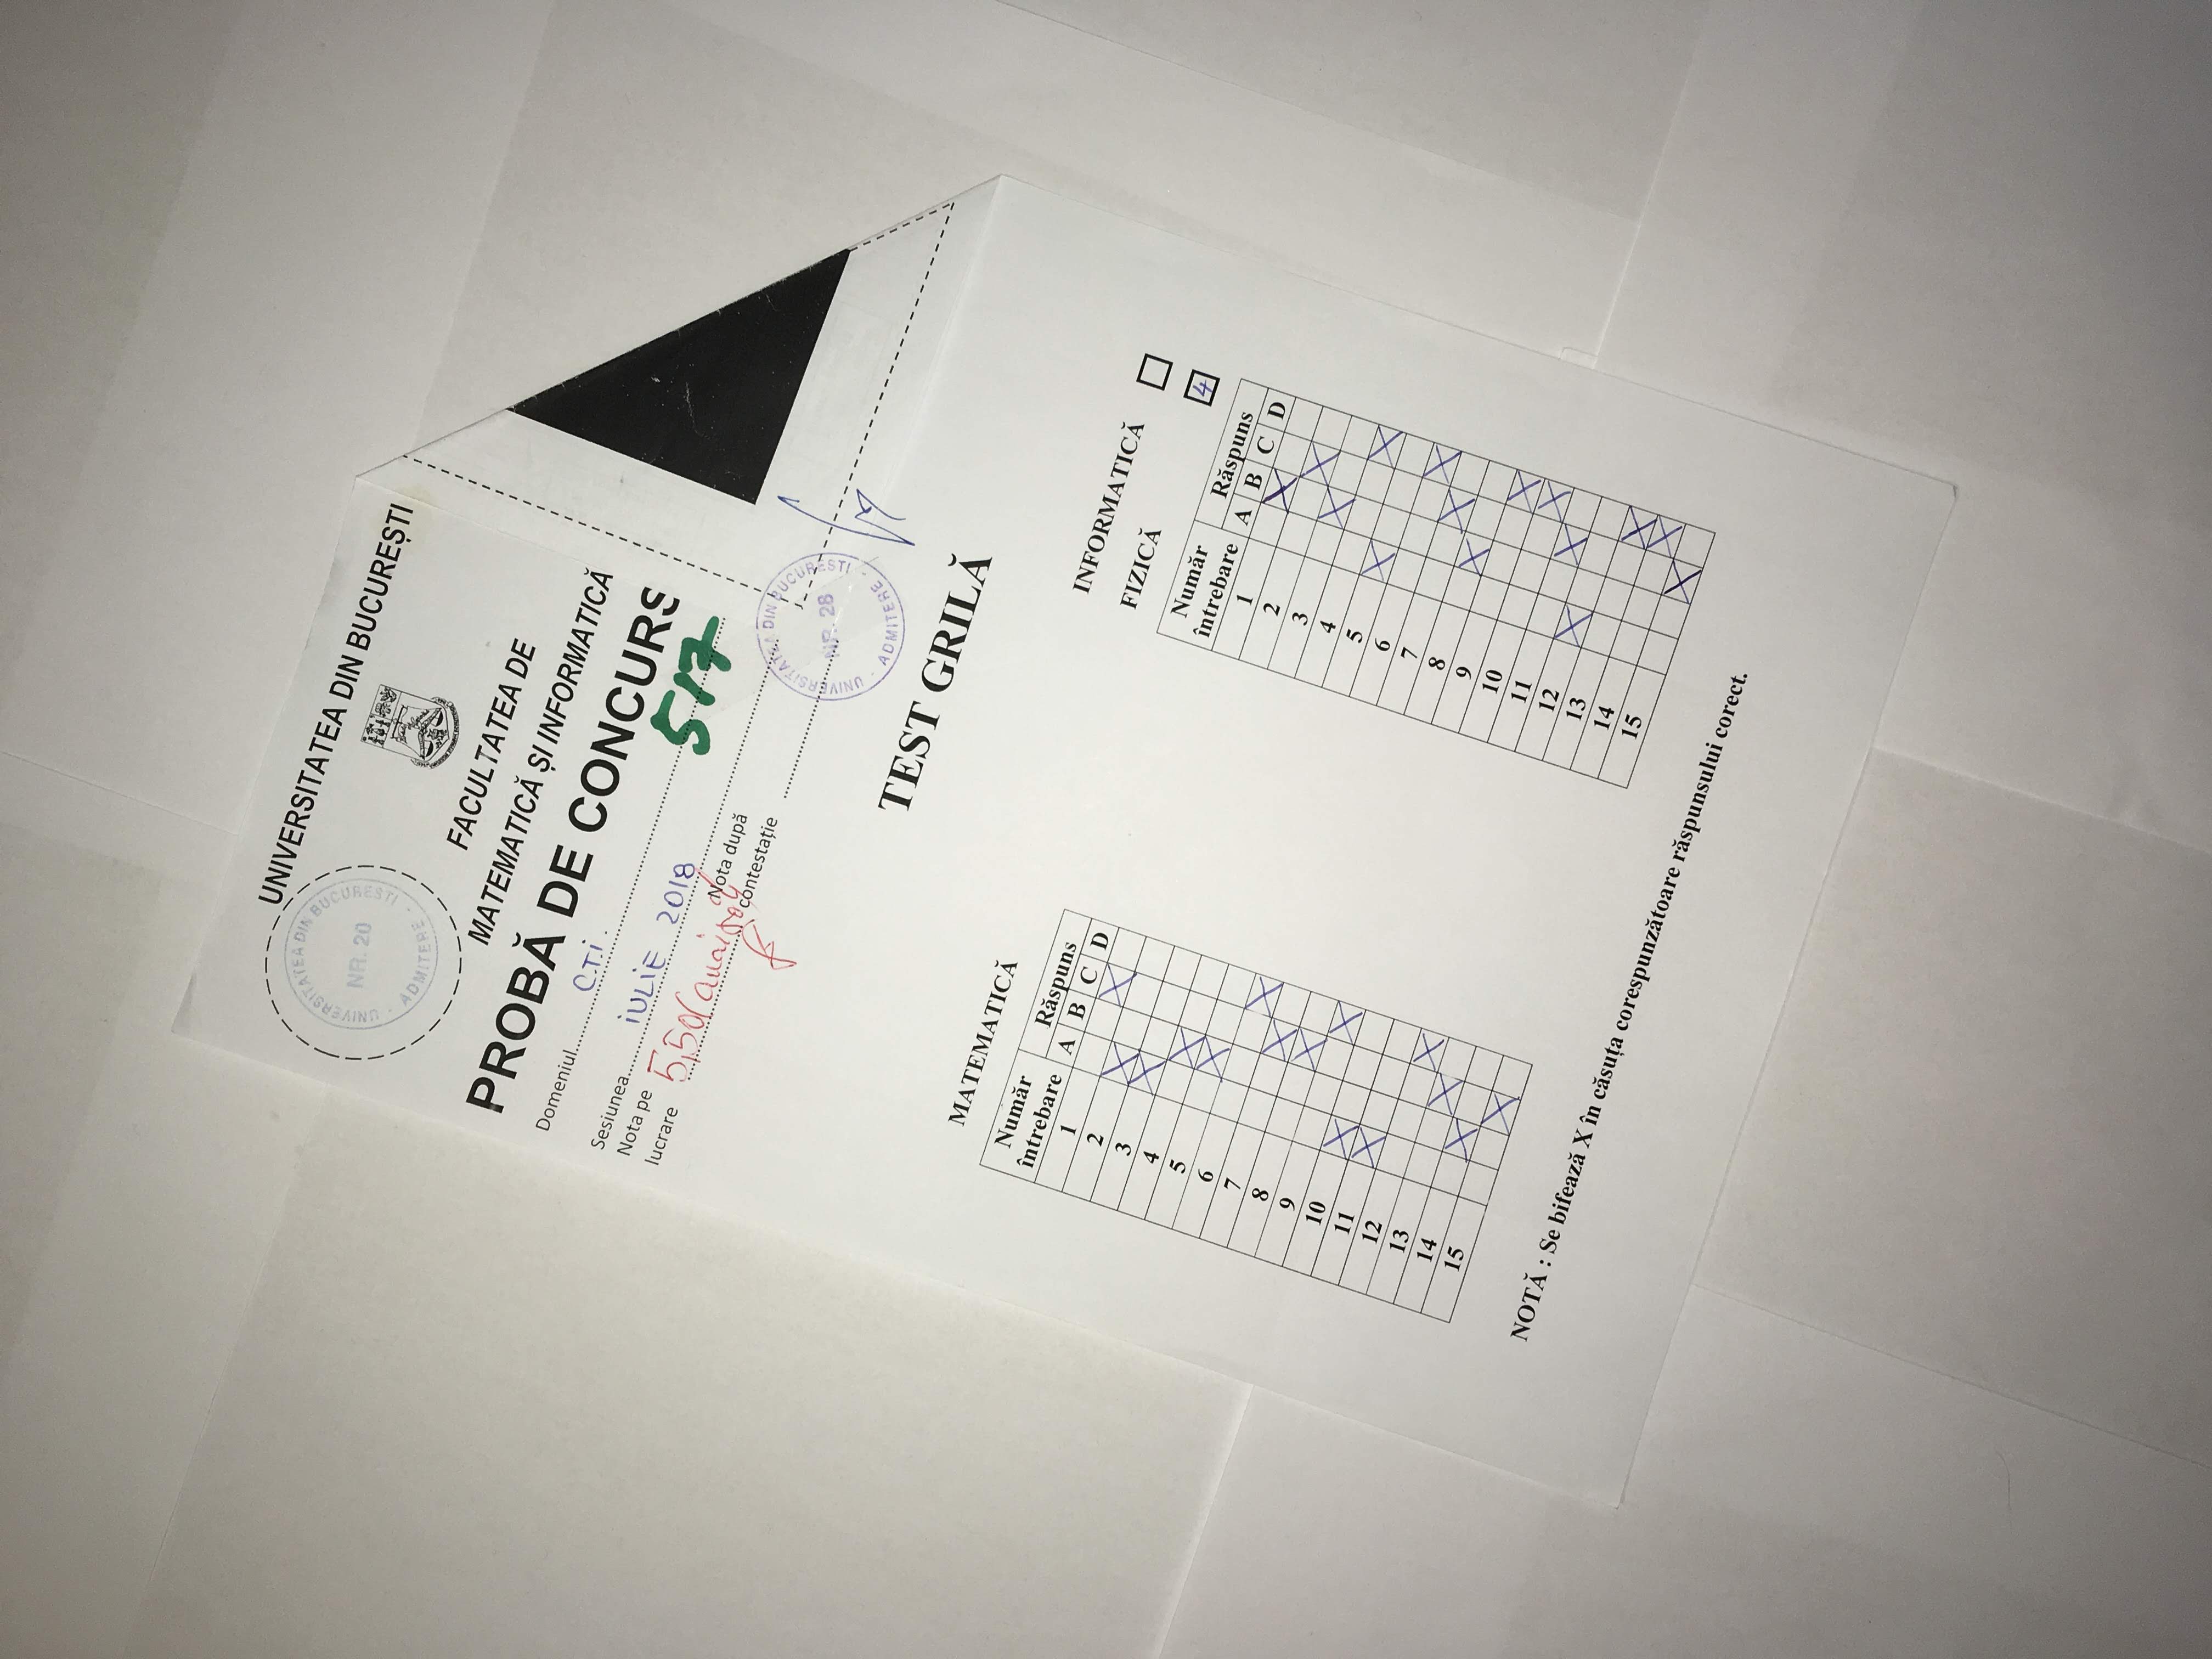 UNIVERSITATEA DIN BUCUREȘTI
UNIVERSITATEA DIN BUCUREȘTI
NR. 20
· ADMITERE ·
FACULTATEA DE
MATEMATICĂ ȘI INFORMATICĂ
PROBĂ DE CONCURS
Domeniul C.T.i.
Sesiunea iULiE 2018
517
Nota pe
lucrare 5,50
Nota după
contestație
UNIVERSITATEA DIN BUCUREȘTI
NR. 28
· ADMITERE ·
TEST GRILĂ
MATEMATICĂ
Număr
întrebare
Răspuns
A B C D
1 X
2 X
3 X
4 X
5 X
6 X
7 X
8 X
9 X
10 X
11 X
12 X
13 X
14 X
15 X
INFORMATICĂ
FIZICĂ 4
Număr
întrebare
Răspuns
A B C D
1 X
2 X
3 X
4 X
5 X
6 X
7 X
8 X
9 X
10 X
11 X
12 X
13 X
14 X
15 X
NOTĂ : Se bifează X în căsuța corespunzătoare răspunsului corect.